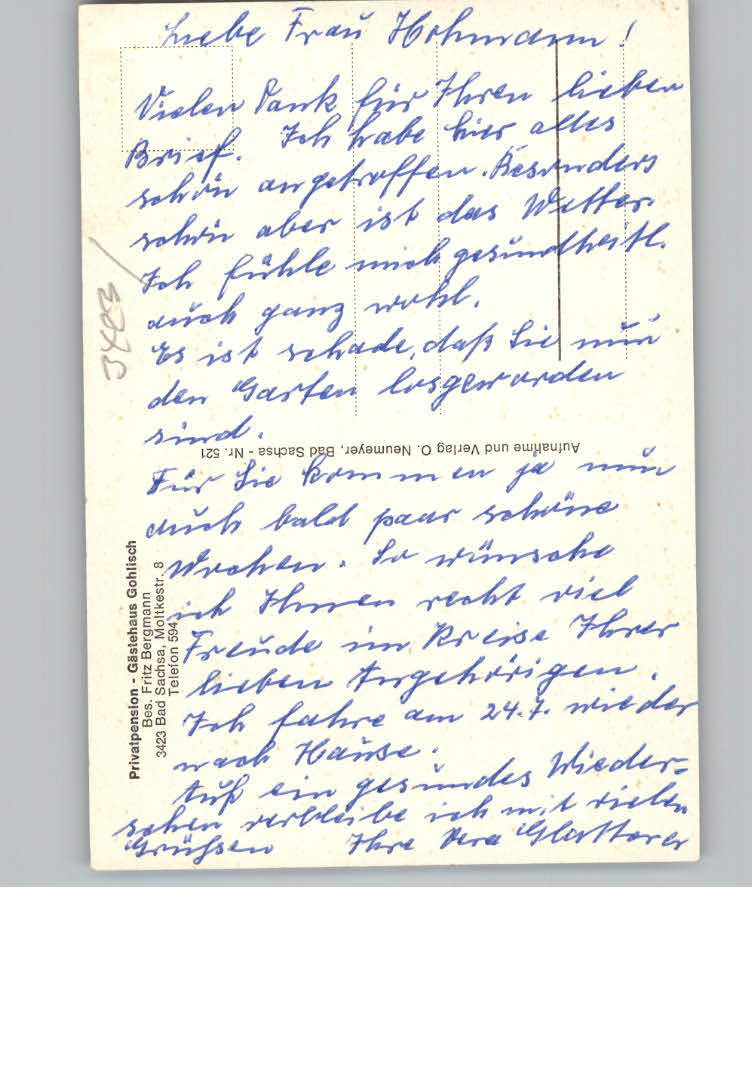 Liebe Frau Hohmann!
Vielen Dank für Ihren lieben
Brief. Ich habe hier alles
schön angetroffen. Besonders
schön aber ist das Wetter.
Ich fühle mich gesundheitl.
auch ganz wohl.
Es ist schade, daß Sie nun
den Garten losgeworden
sind.
Für Sie kommen ja nun
auch bald paar schöne
Wochen. So wünsche
ich Ihnen recht viel
Freude im Kreise Ihrer
lieben Angehörigen.
Ich fahre am 24.7. wieder
nach Hause.
Auf ein gesundes Wieder-
sehen verbleibe ich mit vielen
Grüßen Ihre Vera
Aufnahme und Verlag O. Neumeyer, Bad Sachsa - Nr. 521
Privatpension - Gästehaus Gohlisch
Bes. Fritz Bergmann
3423 Bad Sachsa, Moltkestr. 8
Telefon 594